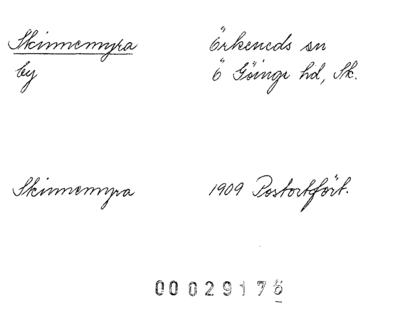 Skinnemyra Örkeneds sn
by Ö Göinge hd, Sk.
Skinnemyra 1909 Postortfört.
00029176